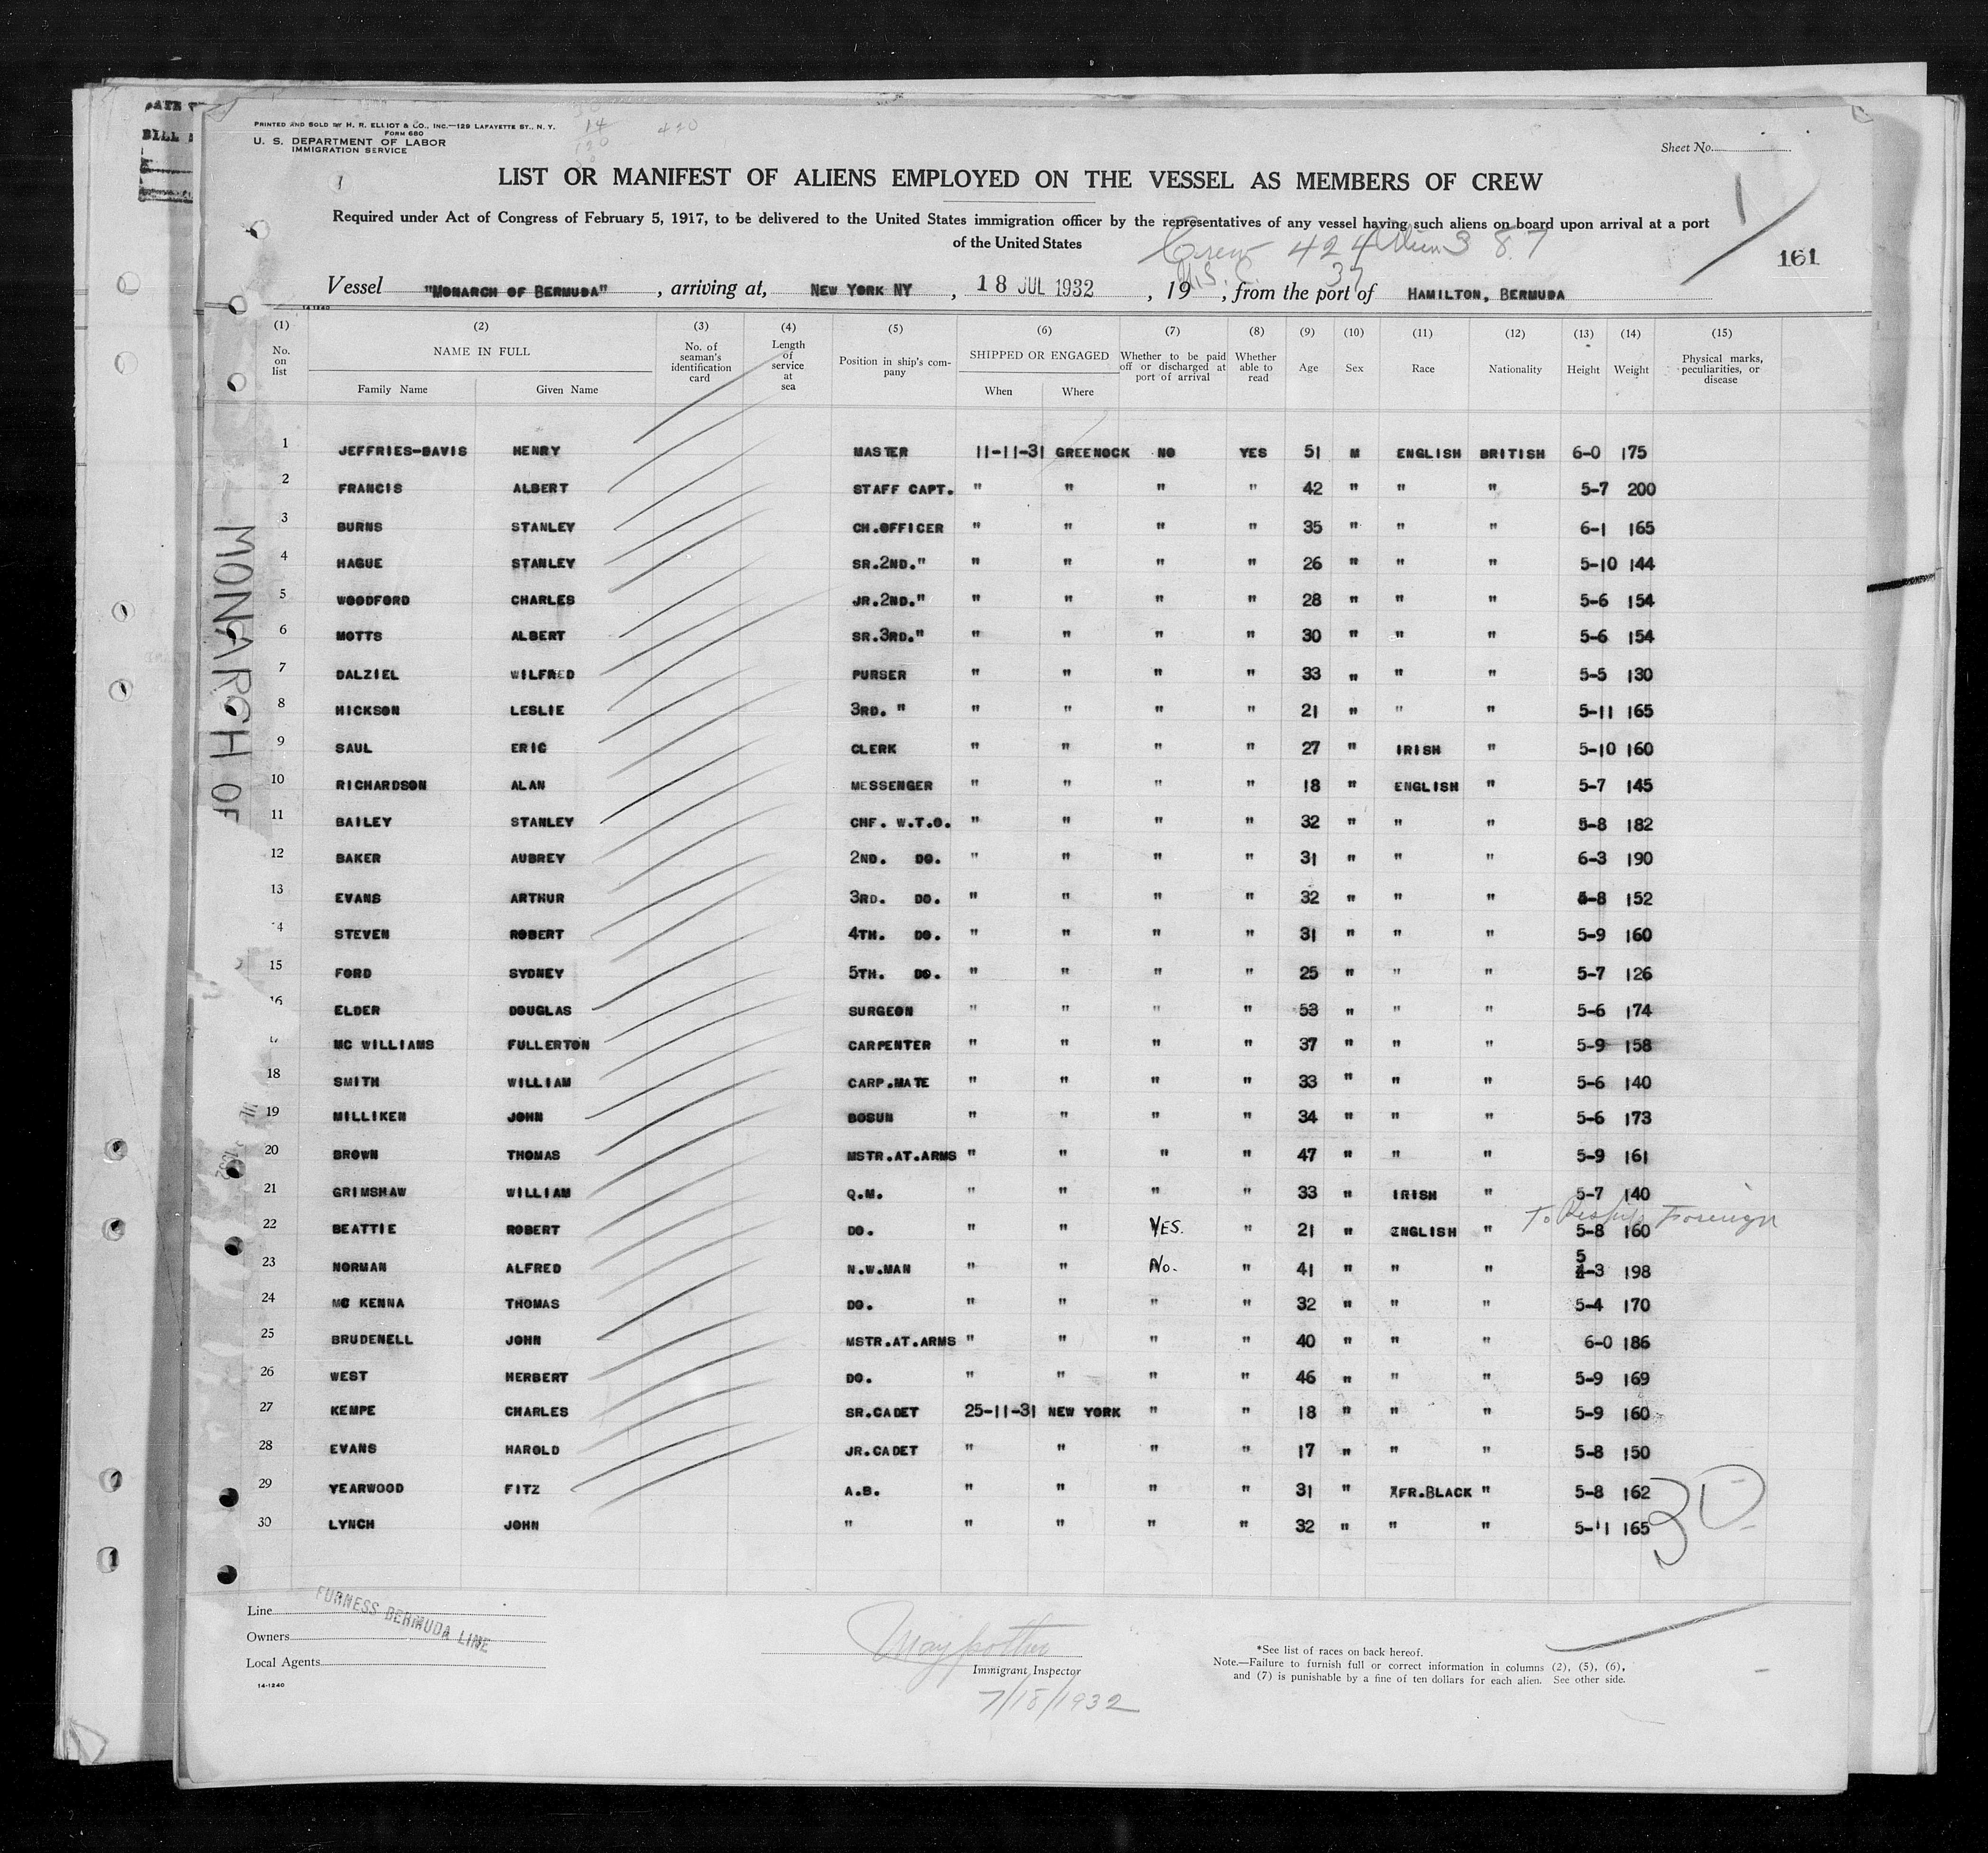 DATE
BILL
PRINTED AND SOLD BY H. R. ELLIOT & CO., INC.—129 LAFAYETTE ST., N. Y.
FORM 680
U. S. DEPARTMENT OF LABOR
IMMIGRATION SERVICE
14
420
120
1
Sheet No.
LIST OR MANIFEST OF ALIENS EMPLOYED ON THE VESSEL AS MEMBERS OF CREW
1
Required under Act of Congress of February 5, 1917, to be delivered to the United States immigration officer by the representatives of any vessel having such aliens on board upon arrival at a port
of the United States
Crew 424 Aliens 387
U.S. C. 37
161
Vessel "MONARCH OF BERMUDA", arriving at, NEW YORK NY, 18 JUL 1932, 19, from the port of HAMILTON, BERMUDA
14-1240
(1) (2) (3) (4) (5) (6) (7) (8) (9) (10) (11) (12) (13) (14) (15)
No. on list NAME IN FULL Family Name Given Name No. of seaman's identification card Length of service at sea Position in ship's company SHIPPED OR ENGAGED When Where Whether to be paid off or discharged at port of arrival Whether able to read Age Sex Race Nationality Height Weight Physical marks, peculiarities, or disease
1 JEFFRIES-DAVIS HENRY MASTER 11-11-31 GREENOCK NO YES 51 M ENGLISH BRITISH 6-0 175
2 FRANCIS ALBERT STAFF CAPT. " " " " 42 " " " 5-7 200
3 BURNS STANLEY CH.OFFICER " " " " 35 " " " 6-1 165
4 HAGUE STANLEY SR.2ND." " " " " 26 " " " 5-10 144
5 WOODFORD CHARLES JR.2ND." " " " " 28 " " " 5-6 154
6 MOTTS ALBERT SR.3RD." " " " " 30 " " " 5-6 154
7 DALZIEL WILFRED PURSER " " " " 33 " " " 5-5 130
8 HICKSON LESLIE 3RD. " " " " " 21 " " " 5-11 165
9 SAUL ERIC CLERK " " " " 27 " IRISH " 5-10 160
10 RICHARDSON ALAN MESSENGER " " " " 18 " ENGLISH " 5-7 145
11 BAILEY STANLEY CHF. W.T.O. " " " " 32 " " " 5-8 182
12 BAKER AUBREY 2ND. DO. " " " " 31 " " " 6-3 190
13 EVANS ARTHUR 3RD. DO. " " " " 32 " " " 5-8 152
14 STEVEN ROBERT 4TH. DO. " " " " 31 " " " 5-9 160
15 FORD SYDNEY 5TH. DO. " " " " 25 " " " 5-7 126
16 ELDER DOUGLAS SURGEON " " " " 53 " " " 5-6 174
17 MC WILLIAMS FULLERTON CARPENTER " " " " 37 " " " 5-9 158
18 SMITH WILLIAM CARP.MATE " " " " 33 " " " 5-6 140
19 MILLIKEN JOHN BOSUN " " " " 34 " " " 5-6 173
20 BROWN THOMAS MSTR.AT.ARMS " " " " 47 " " " 5-9 161
21 GRIMSHAW WILLIAM Q.M. " " " " 33 " IRISH " 5-7 140
To Foreign
22 BEATTIE ROBERT DO. " " YES. " 21 " ENGLISH " 5-8 160
23 NORMAN ALFRED N.W.MAN " " No. " 41 " " " 5-3 198
24 MC KENNA THOMAS DO. " " " " 32 " " " 5-4 170
25 BRUDENELL JOHN MSTR.AT.ARMS " " " " 40 " " " 6-0 186
26 WEST HERBERT DO. " " " " 46 " " " 5-9 169
27 KEMPE CHARLES SR.CADET 25-11-31 NEW YORK " " 18 " " " 5-9 160
28 EVANS HAROLD JR.CADET " " " " 17 " " " 5-8 150
29 YEARWOOD FITZ A.B. " " " " 31 " AFR.BLACK " 5-8 162
30 LYNCH JOHN " " " " " 32 " " " 5-11 165
30
MONARCH OF
Line
FURNESS BERMUDA LINE
Owners
Local Agents
14-1240
Immigrant Inspector
7/18/1932
*See list of races on back hereof.
Note.—Failure to furnish full or correct information in columns (2), (5), (6),
and (7) is punishable by a fine of ten dollars for each alien. See other side.